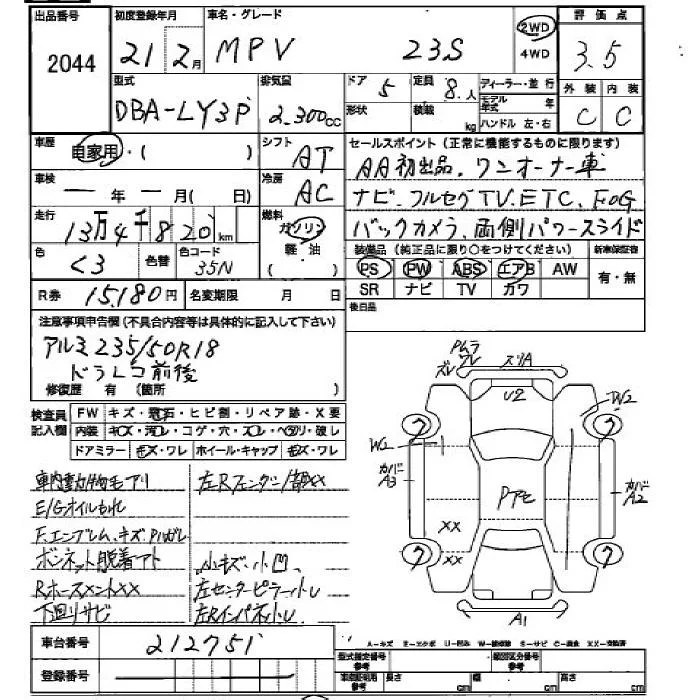 出品番号
2044
初度登録年月
21 2月
車名・グレード
MPV 23S
2WD
4WD
評価点
3.5
外装 内装
C C
型式
DBA-LY3P
排気量
2.300cc
ドア 5
定員 8人
形状
積載 kg
ディーラー・並行
モデル年式 年
ハンドル 左・右
車歴
自家用・( )
シフト
AT
セールスポイント(正常に機能するものに限ります)
AA初出品、ワンオーナー車
ナビ、フルセグTV、ETC、FOG
バックカメラ、両側パワースライド
車検
ー年ー月( 日)
冷房
AC
走行
13万4千820km
燃料
ガソリン
軽・油
( )
色
<3
色替
色コード
35N
装備品(純正品に限り○をつけてください)
新車保証書
PS PW ABS エアB AW
SR ナビ TV カワ
有・無
R券 15,180円
名変期限 月 日
後日品
注意事項申告欄(不具合内容等は具体的に記入して下さい)
アルミ235/50R18
ドラレコ前後
修復歴 有 (箇所 )
検査員記入欄
FW キズ・飛石・ヒビ割・リペア跡・X要
内装 キズ・汚レ・コゲ・穴・スレ・ヘタリ・破レ
ドアミラー キズ・ワレ ホイール・キャップ キズ・ワレ
車内動物毛アリ
E/Gオイルもれ
F.エンブレム、キズ
ボンネット脱着アト
Rホースメントxx
下回りサビ
小キズ・小凹
左センターピラー小し
左Rインパネ小し
スリA
U2
W2
W2
カバーA3
カバーA2
xx
xx
A1
車台番号
212751
登録番号
A−キズ E−エクボ U−凹み S−サビ XX−交換済
型式指定番号
類別区分番号
長さ cm
幅 cm
高さ cm